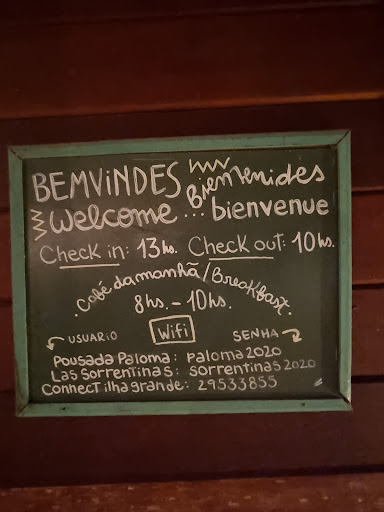 BEMVINDES Bienvenides
Welcome... bienvenue
Check in: 13hs. Check out: 10hs.
Café da manhã/Breakfast.
8hs. - 10hs.
USUARIO Wifi SENHA
Pousada Paloma: paloma2020
Las Sorrentinas: sorrentinas2020
Connect ilha grande: 29533855